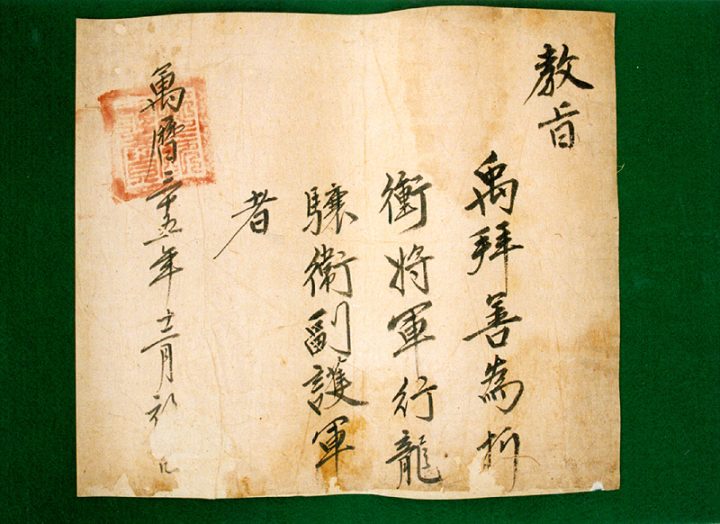 教旨
禹拜善為折
衝將軍行龍
驤衛副護軍
者
萬曆二十五年十二月初